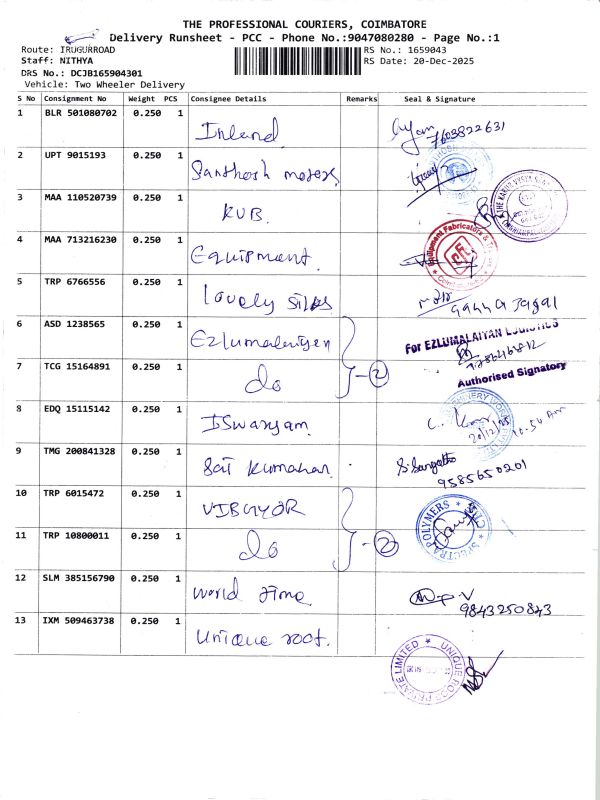 THE PROFESSIONAL COURIERS, COIMBATORE
Delivery Runsheet - PCC - Phone No.:9047080280 - Page No.:1
Route: IRUGURROAD
RS No.: 1659043
Staff: NITHYA
RS Date: 20-Dec-2025
DRS No.: DCJB165904301
Vehicle: Two Wheeler Delivery
S No Consignment No Weight PCS Consignee Details Remarks Seal & Signature
1 BLR 501080702 0.250 1 Inland 7603822631
2 UPT 9015193 0.250 1 Santhosh motors
3 MAA 110520739 0.250 1 KVB.
4 MAA 713216230 0.250 1 Equipment
Equipment Fabricators &
5 TRP 6766556 0.250 1 lovely silks
6 ASD 1238565 0.250 1 Ezlumalaiyan
For EZLUMALAIYAN LOGISTICS
7 TCG 15164891 0.250 1 do - 2
Authorised Signatory
8 EDQ 15115142 0.250 1 ISwaryam 20/12/25 10:54 Am
9 TMG 200841328 0.250 1 Sai Kumaran 9585650201
10 TRP 6015472 0.250 1 VIBGYOR
SPECTRA POLYMERS
11 TRP 10800011 0.250 1 do - 2
12 SLM 385156790 0.250 1 World Time 9843250843
13 IXM 509463738 0.250 1 Unique roof.
PRIVATE LIMITED ★ UNIQUE ROOF